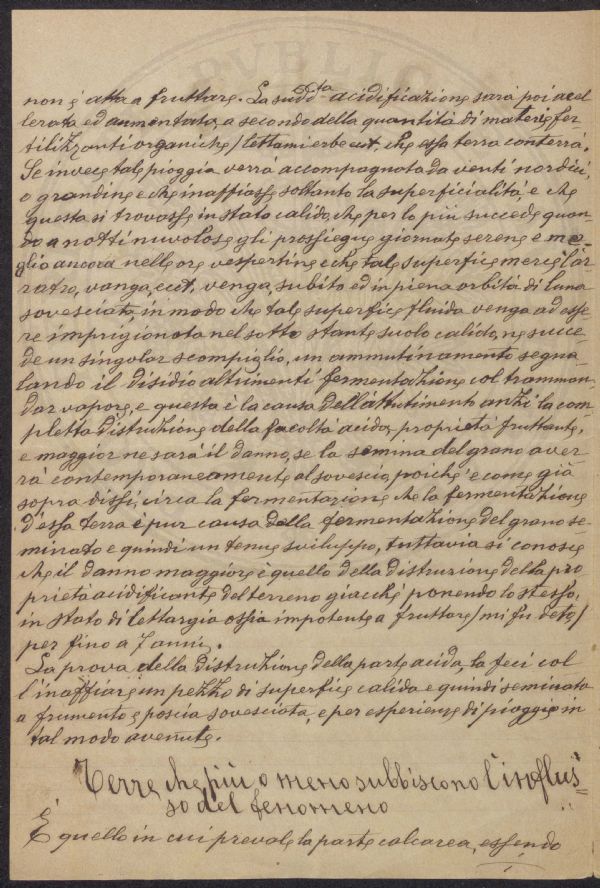 PVBLIC
non è atta a fruttare. La sudd.ta acidificazione sarà poi accel
lerata ed aumentata, a seconda della quantità di materie fer
tilizzanti organiche/lettami erbe ect. che essa terra conterrà.
Se invece tale pioggia verrà accompagnata da venti nordici,
o grandine e che inaffiasse soltanto la superficialità, e che
questa si trovasse in stato calido, che per lo più succede quan-
do a notti nuvolose gli prossiegue giornate serene e me-
glio ancora nelle ore vespertine e che tale superficie mercè l'ar
ratro, vanga, ect. venga, subito ed in piena orbita di luna
sovesciata, in modo che tale superficie fluida venga ad esse
re imprigionata nel sotto stante suolo calido, ne succe-
de un singolar scompiglio, un ammutinamento segna-
lando il disidio altrimenti fermentazione col tramman-
dar vapore, e questa è la causa dell'attutimento anzi la com-
pletta distruzione della facoltà acida, proprietà fruttante,
e maggior ne sarà il danno, se la semina del grano aver-
rà contemporaneamente al sovescio, poiché e come già
sopra dissi, circa la fermentazione che la fermentazione
d'essa terra è pur causa della fermentazione del grano se-
minato e quindi un tenue sviluppo, tuttavia si conosce
che il danno maggiore è quello della distruzione della pro
prietà acidificante del terreno giacchè ponendo lo stesso,
in stato di lettargia ossia impotente a fruttare/mi fu deto/
per fino a 7 anni.
La prova della distruzione della parte acida, la feci col
l'inaffiare un pezzo di superficie calida e quindi seminata
a frumento e poscia sovesciata, e per esperienze di pioggie in
tal modo avenute.
Terre che più o meno subbiscono l'influs=
so del fenomeno
È quello in cui prevale la parte calcarea, essendo